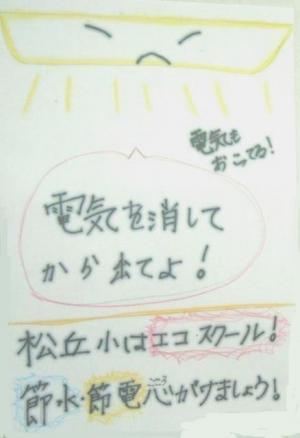 電気も
おこってる!
電気を消して
から出てよ!
松丘小はエコ・スクール!
節水・節電心がけましょう!
こころ